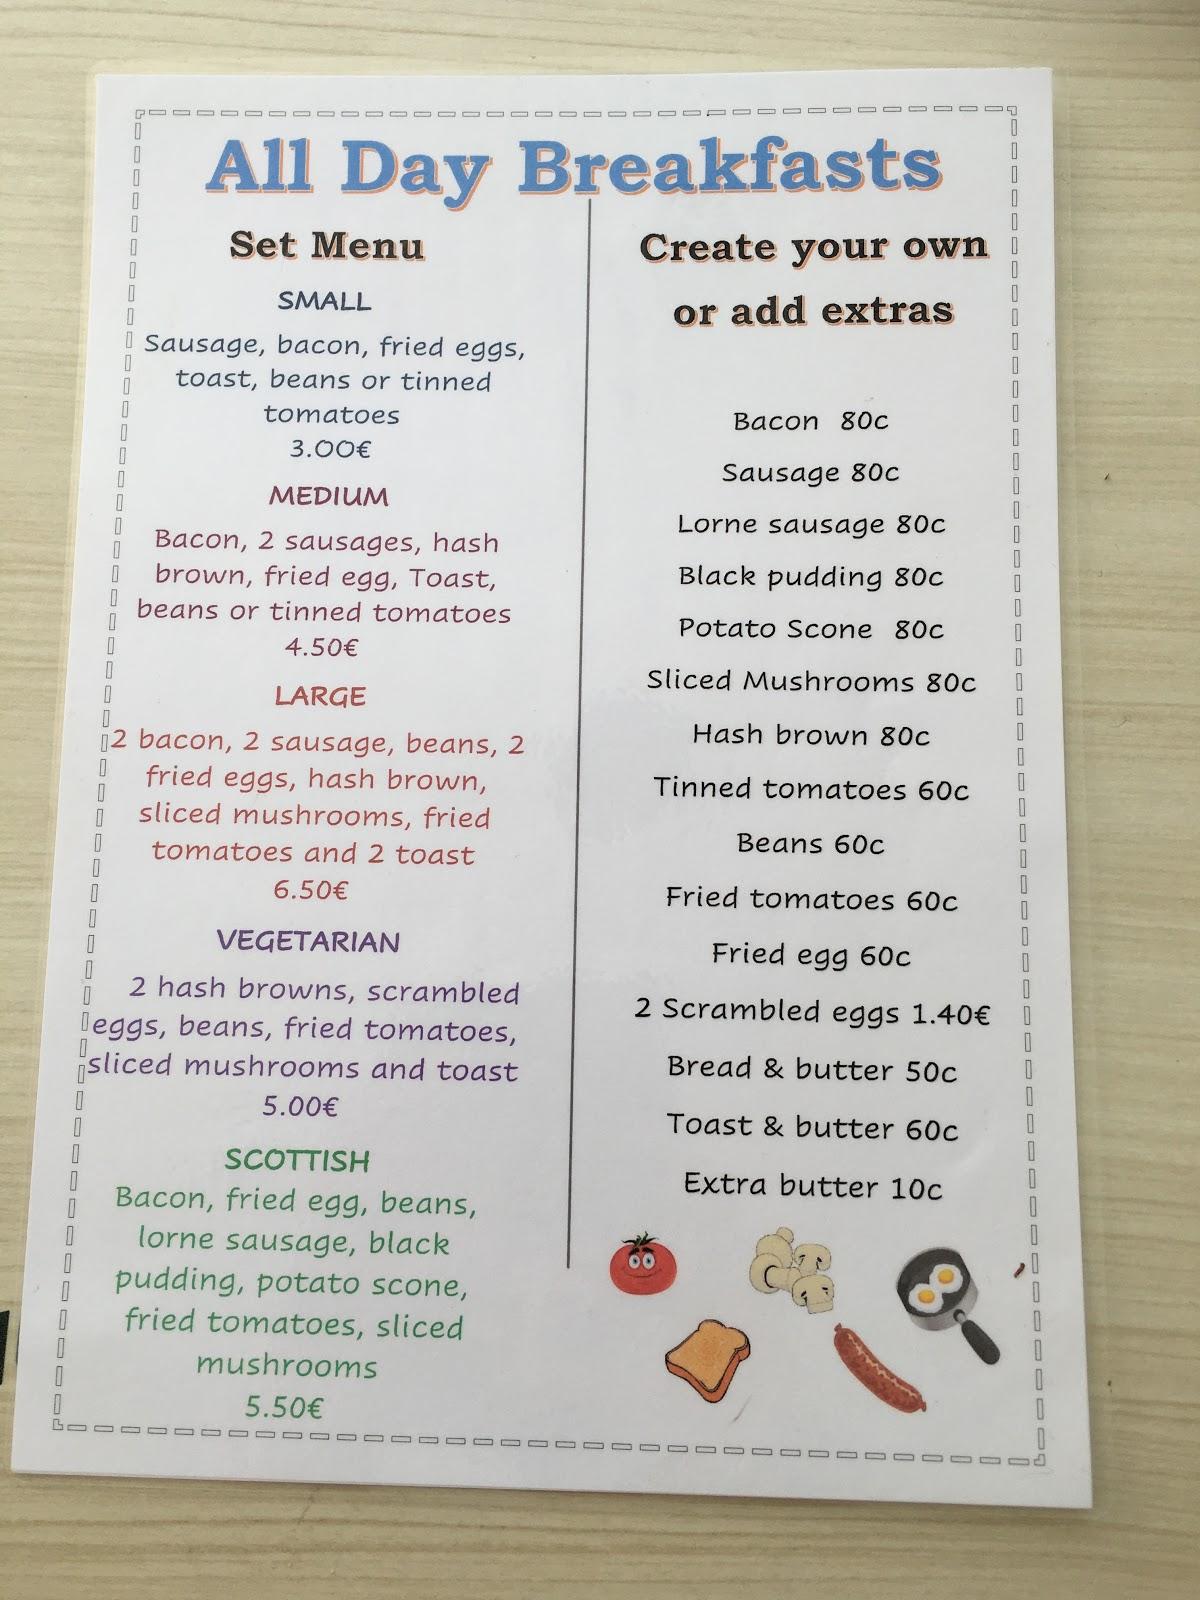 All Day Breakfasts
Set Menu
SMALL
Sausage, bacon, fried eggs,
toast, beans or tinned
tomatoes
3.00€
MEDIUM
Bacon, 2 sausages, hash
brown, fried egg, Toast,
beans or tinned tomatoes
4.50€
LARGE
2 bacon, 2 sausage, beans, 2
fried eggs, hash brown,
sliced mushrooms, fried
tomatoes and 2 toast
6.50€
VEGETARIAN
2 hash browns, scrambled
eggs, beans, fried tomatoes,
sliced mushrooms and toast
5.00€
SCOTTISH
Bacon, fried egg, beans,
lorne sausage, black
pudding, potato scone,
fried tomatoes, sliced
mushrooms
5.50€
Create your own
or add extras
Bacon 80c
Sausage 80c
Lorne sausage 80c
Black pudding 80c
Potato Scone 80c
Sliced Mushrooms 80c
Hash brown 80c
Tinned tomatoes 60c
Beans 60c
Fried tomatoes 60c
Fried egg 60c
2 Scrambled eggs 1.40€
Bread & butter 50c
Toast & butter 60c
Extra butter 10c